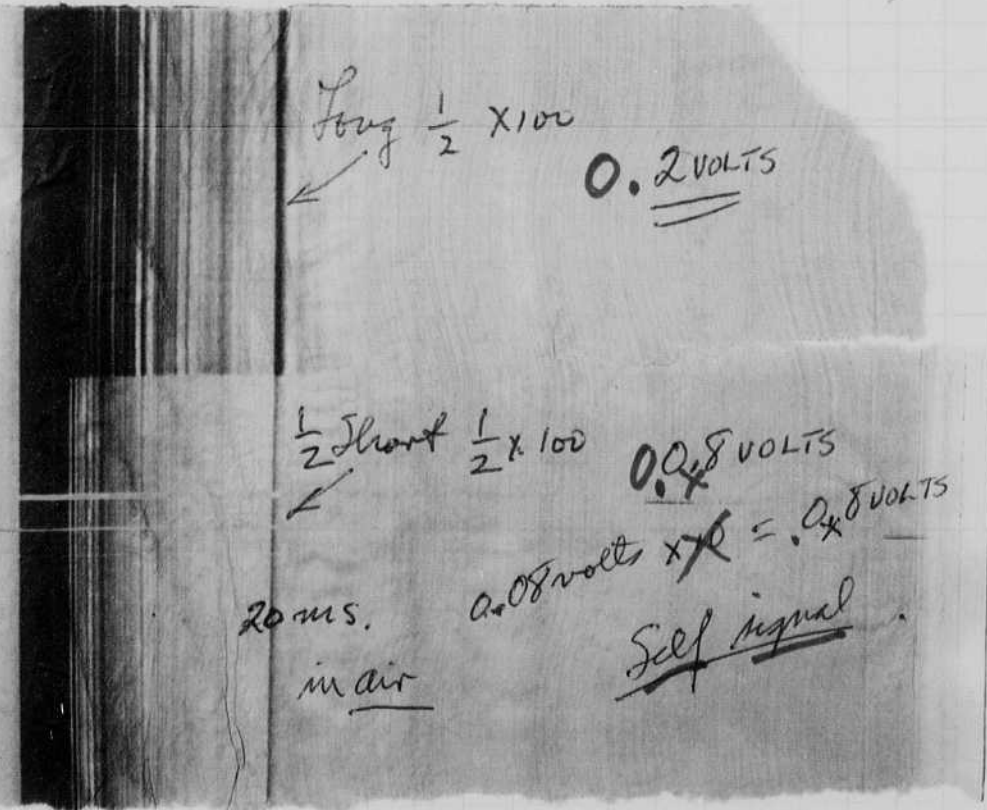 Long 1/2 X100
0.2 VOLTS
1/2 Short 1/2 x 100
0.08 VOLTS
0.08 volts x = .08 VOLTS
20 ms.
Self signal
in air